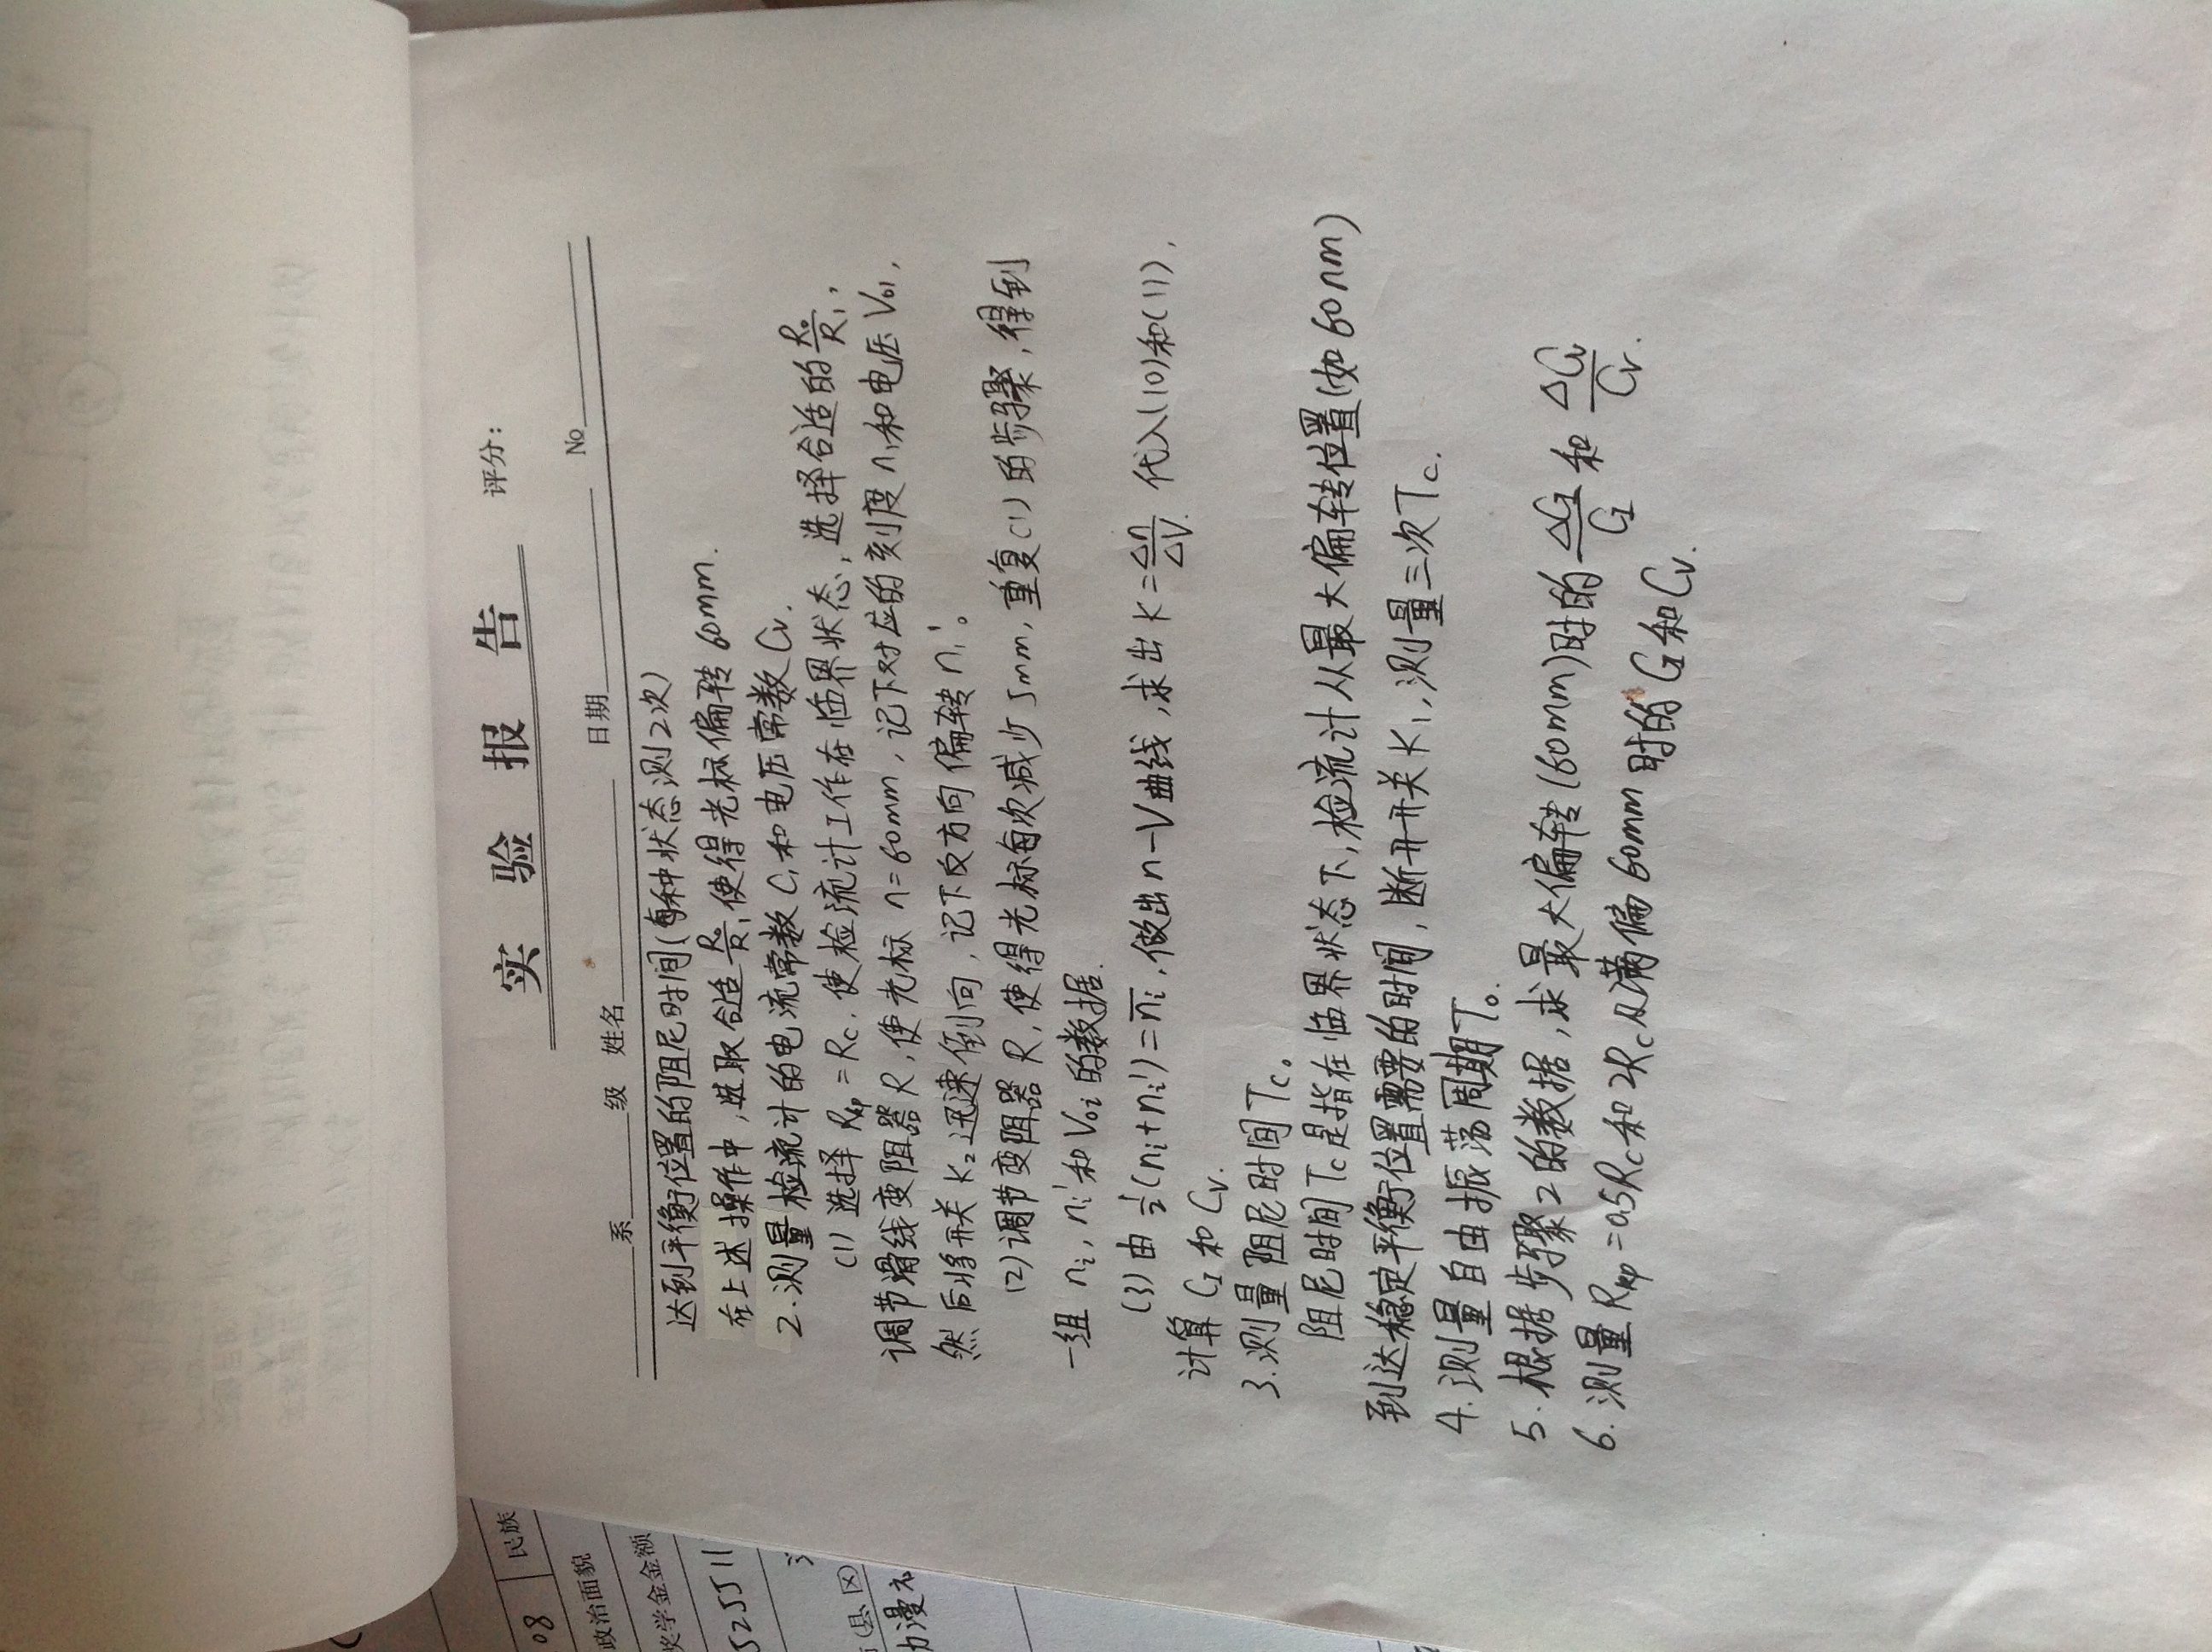 08
民族
政治面貌
奖学金金额
525511
(县区)
动漫
实 验 报 告
评分:
系 级 姓名 日期 No
达到平衡位置的阻尼时间(每种状态测2次)
在上述操作中,选取合适 R₀/R₁,使得光标偏转60mm.
2.测量检流计的电流常数C,和电压常数Cv.
(1)选择 Rkp=Rc.使检流计工作在临界状态,选择合适的 R₀/R₁,
调节滑线变阻器R,使光标 n=60mm,记下对应的刻度n₁和电压V₀₁,
然后将开关K₂迅速倒向,记下反方向偏转n₁'。
(2)调节变阻器R,使得光标每次减少5mm,重复(1)的步骤,得到
一组 nᵢ, nᵢ'和V₀ᵢ的数据.
(3)由 ½(nᵢ+nᵢ')=n̅ᵢ,做出n-V曲线,求出K=Δn/ΔV. 代入(10)和(11),
计算 C_I 和 Cv.
3.测量阻尼时间Tc。
阻尼时间Tc是指在临界状态下,检流计从最大偏转位置(如60nm)
到达稳定平衡位置需要的时间,断开开关K₁,测量三次Tc.
4.测量自由振荡周期T₀.
5.根据步骤2的数据,求最大偏转(60mm)时的 ΔC_I/C_I 和 ΔCv/Cv.
6.测量Rkp=0.5Rc和2Rc及满偏60mm时的C_I和Cv.